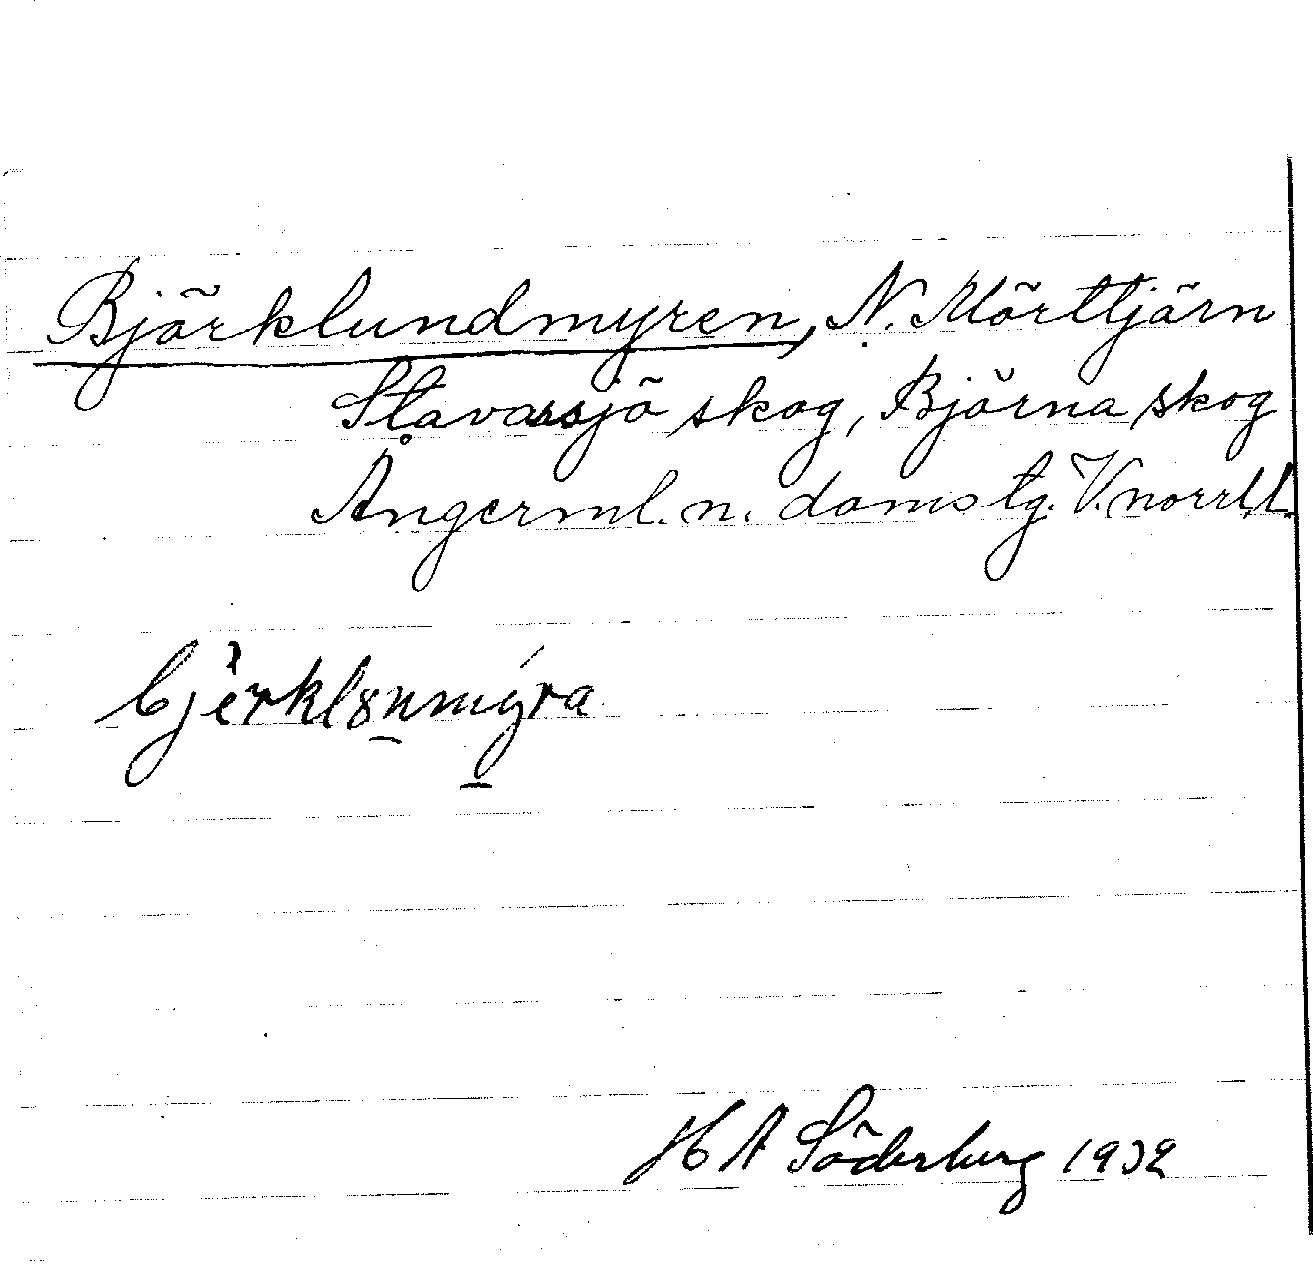 Björklundmyren, N. Mörttjärn
Stavarsjö skog, Björna skog
Ångerml. n. doms tg. V.norrl.l.
bjèrklωnmýra
H A Söderberg 1932